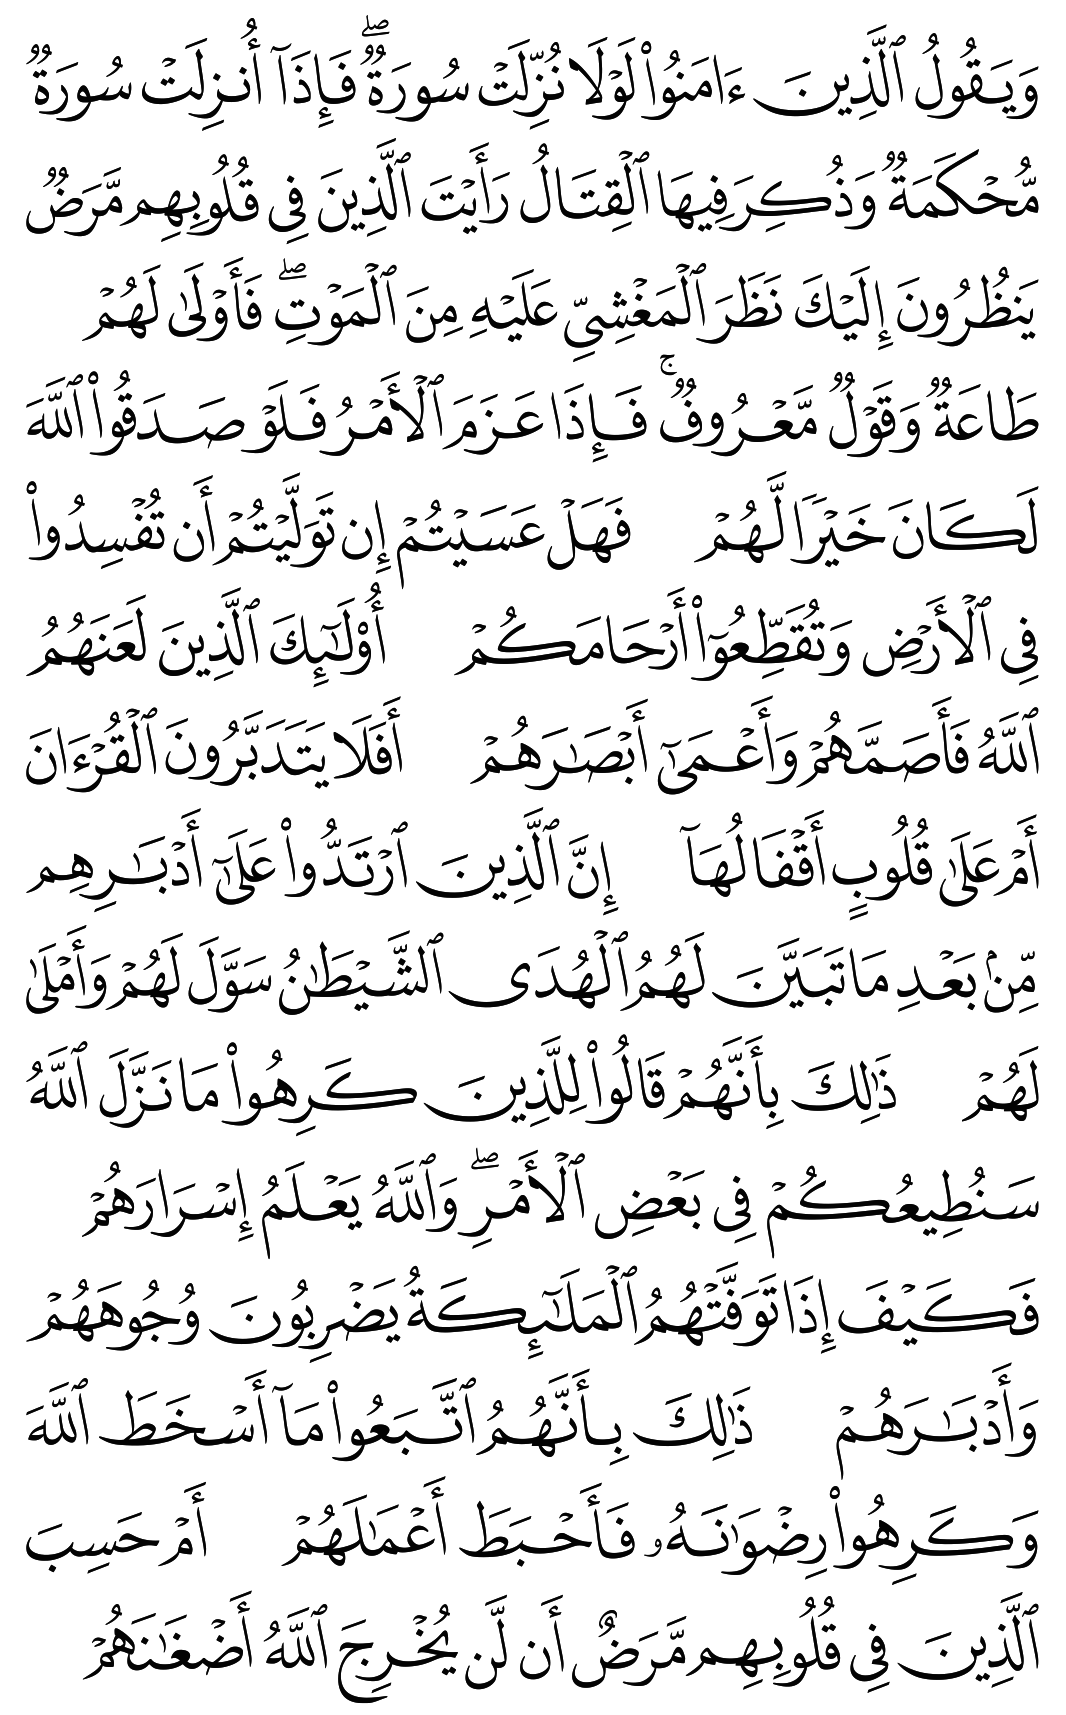 وَيَقُولُ ٱلَّذِينَ ءَامَنُوا۟ لَوْلَا نُزِّلَتْ سُورَةٌۖ فَإِذَآ أُنزِلَتْ سُورَةٌ
مُّحْكَمَةٌ وَذُكِرَ فِيهَا ٱلْقِتَالُ رَأَيْتَ ٱلَّذِينَ فِى قُلُوبِهِم مَّرَضٌ
يَنظُرُونَ إِلَيْكَ نَظَرَ ٱلْمَغْشِىِّ عَلَيْهِ مِنَ ٱلْمَوْتِۖ فَأَوْلَىٰ لَهُمْ
طَاعَةٌ وَقَوْلٌ مَّعْرُوفٌۚ فَإِذَا عَزَمَ ٱلْأَمْرُ فَلَوْ صَدَقُوا۟ ٱللَّهَ
لَكَانَ خَيْرًا لَّهُمْ فَهَلْ عَسَيْتُمْ إِن تَوَلَّيْتُمْ أَن تُفْسِدُوا۟
فِى ٱلْأَرْضِ وَتُقَطِّعُوٓا۟ أَرْحَامَكُمْ أُو۟لَٰٓئِكَ ٱلَّذِينَ لَعَنَهُمُ
ٱللَّهُ فَأَصَمَّهُمْ وَأَعْمَىٰٓ أَبْصَٰرَهُمْ أَفَلَا يَتَدَبَّرُونَ ٱلْقُرْءَانَ
أَمْ عَلَىٰ قُلُوبٍ أَقْفَالُهَآ إِنَّ ٱلَّذِينَ ٱرْتَدُّوا۟ عَلَىٰٓ أَدْبَٰرِهِم
مِّنۢ بَعْدِ مَا تَبَيَّنَ لَهُمُ ٱلْهُدَى ٱلشَّيْطَٰنُ سَوَّلَ لَهُمْ وَأَمْلَىٰ
لَهُمْ ذَٰلِكَ بِأَنَّهُمْ قَالُوا۟ لِلَّذِينَ كَرِهُوا۟ مَا نَزَّلَ ٱللَّهُ
سَنُطِيعُكُمْ فِى بَعْضِ ٱلْأَمْرِۖ وَٱللَّهُ يَعْلَمُ إِسْرَارَهُمْ
فَكَيْفَ إِذَا تَوَفَّتْهُمُ ٱلْمَلَٰٓئِكَةُ يَضْرِبُونَ وُجُوهَهُمْ
وَأَدْبَٰرَهُمْ ذَٰلِكَ بِأَنَّهُمُ ٱتَّبَعُوا۟ مَآ أَسْخَطَ ٱللَّهَ
وَكَرِهُوا۟ رِضْوَٰنَهُۥ فَأَحْبَطَ أَعْمَٰلَهُمْ أَمْ حَسِبَ
ٱلَّذِينَ فِى قُلُوبِهِم مَّرَضٌ أَن لَّن يُخْرِجَ ٱللَّهُ أَضْغَٰنَهُمْ